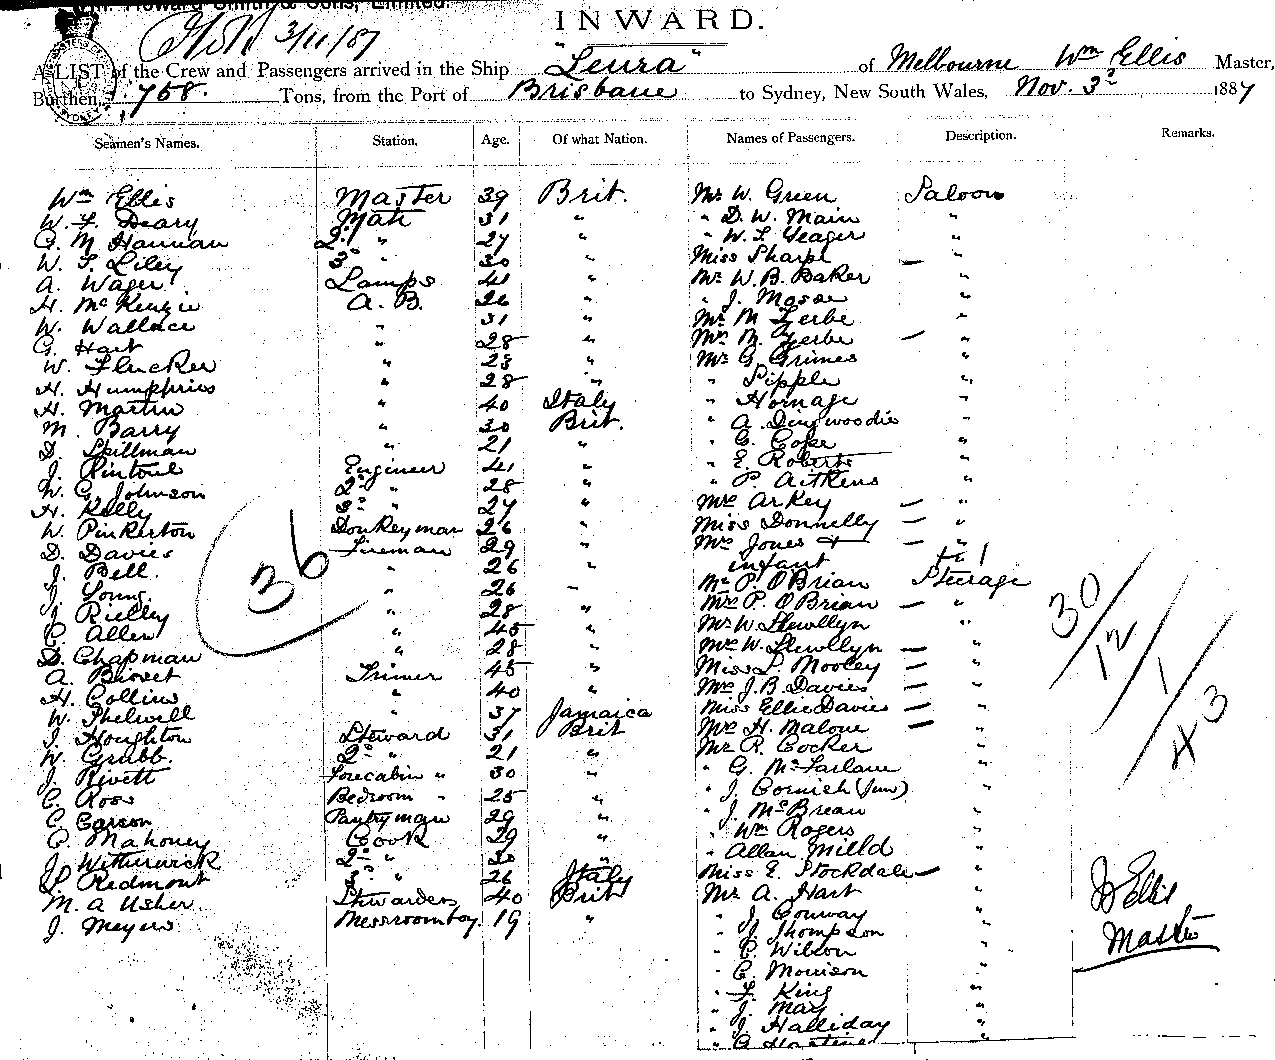 INWARD.
3/11/87
A LIST of the Crew and Passengers arrived in the Ship "Leura" of Melbourne Wm Ellis Master,
Burthen, 758. Tons, from the Port of Brisbane to Sydney, New South Wales, Nov. 3d 1887
Seamen's Names. Station. Age. Of what Nation. Names of Passengers. Description. Remarks.
Wm Ellis Master 39 Brit. Mr W. Green Saloon
W. F. Deary Mate 31 " " D. W. Main "
G. M Hannan 2d " 27 " " W. L. Yeager "
W. S. Liley 3d " 30 " Miss Sharpe — "
A. Wager Lamps 41 " Mr W. B. Baker "
H. McKenzie A. B. 26 " " J. Mosse "
W. Wallace " 31 " Mr M Zerbe "
G. Hart " 28 " Mrs M. Zerbe — "
W. Flucker " 23 " Mr G. Grimes "
H. Humphries " 28 " " Pipple "
H. Martin " 40 Italy " Homage "
M. Barry " 30 Brit. " A. Dingwoodie "
D. Spillman " 21 " " G. Cope "
J. Rintoul Engineer 41 " " E. Roberts "
W. G. Johnson 2d " 28 " " P. Aitkens "
H. Kelly 3d " 27 " Mrs Arkey — "
W. Pinkerton Donkeyman 26 " Miss Donnelly — "
D. Davies Fireman 29 " Mrs Jones + — "
J. Bell. " 26 " infant
J. Young. " 26 " Mr P. O'Brian Steerage
J. Rielly " 28 " Mrs P. O'Brian — "
C. Allen " 45 " Mr W. Llewllyn "
D. Chapman " 28 " Mrs W. Llewllyn — "
A. Bisset Trimer 45 " Miss L. Mooley — "
H. Collins " 40 " Mrs J. B. Davies — "
W. Shelwell " 37 Jamaica Miss Ellie Davies — "
J. Houghton Steward 31 Brit Mrs H. Malone — "
W. Grubb. 2d " 21 " Mr R. Cocker "
J. Rivett Forecabin " 30 " " G. McFarlane "
C. Ross Bedroom " 25 " " J. Cornich (Jun) "
C. Carson Pantryman 29 " " J. McBrean "
C. Mahoney Cook 39 " " Wm Rogers "
J. Witherwick 2d " 30 " " Allan Milld "
P. Redmont 3d " 26 Italy Miss E. Stockdale — "
M. A Usher Stwardess 40 Brit Mr A. Hart "
J. Meyers Messroomboy 19 " " J. Conway "
" J. Thompson "
" C. Wilson "
" C. Morrison "
" F. King "
" J. May "
" J. Halliday "
36
30/12/1/43
W Ellis
Master